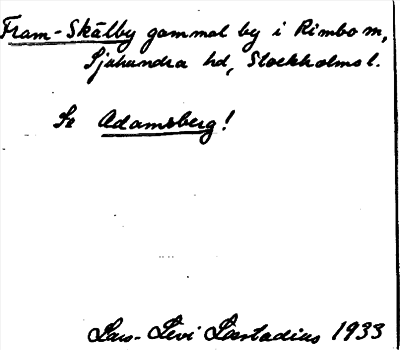 Fram-Skålby gammal by i Rimbo sn,
Sjuhundra hd, Stockholms l.
Se Adamsberg!
Lars-Levi Læstadius 1933